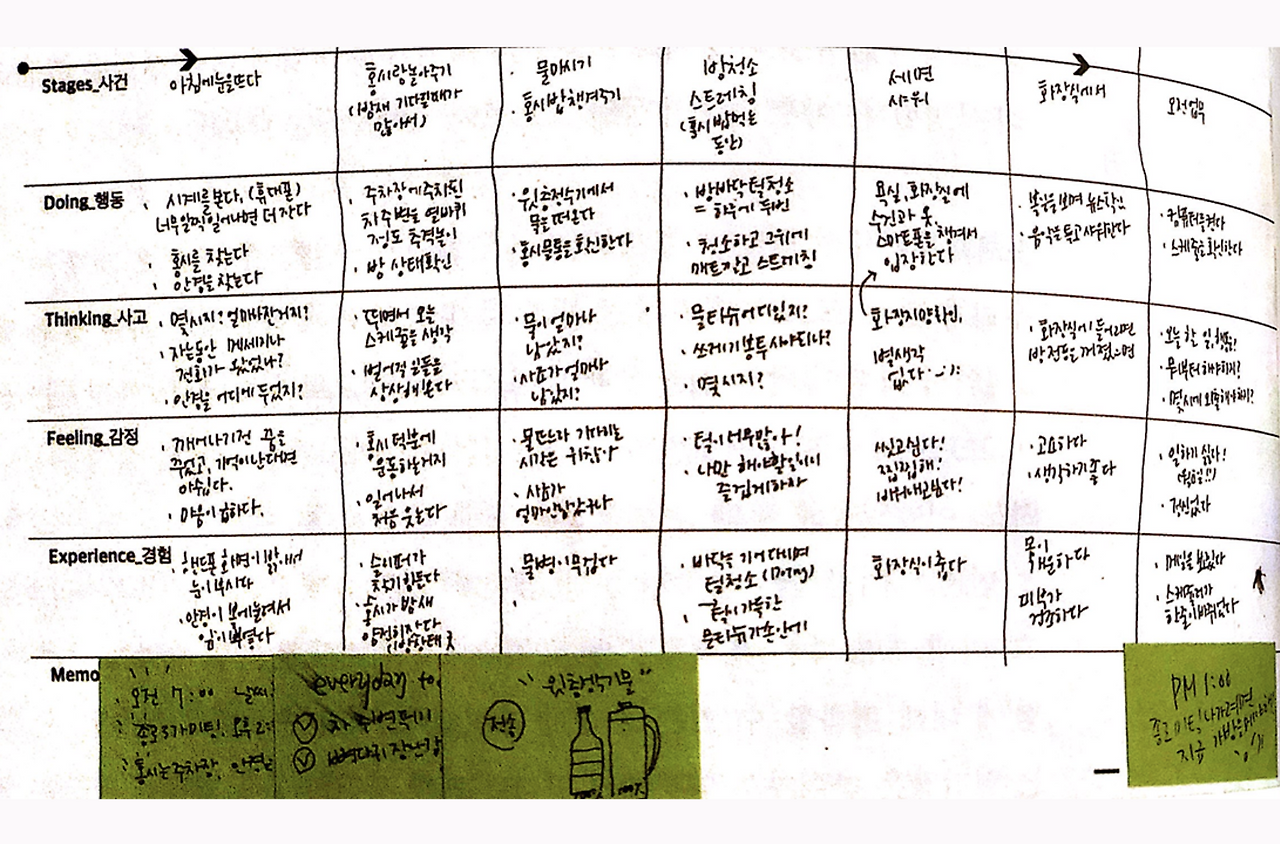 Stages_사건
아침에눈을뜨다
홍시랑놀아주기
(밤새 기다릴때가
많아서)
· 물마시기
· 홍시밥챙겨주기
방청소
스트레칭
(홍시밥먹는
동안)
세면
샤워
화장실에서
오전업무
Doing_행동
· 시계를본다. (휴대폰)
너무일찍일어나면 더 잔다
· 홍시를 찾는다
· 안경을 찾는다
· 주차장에주차된
차주변을 열바퀴
정도 추격놀이
· 방 상태확인
· 윗층정수기에서
물을떠온다
· 홍시물통을확인한다
· 방바닥털청소
= 하루에 두번
· 청소하고 그위에
매트깔고 스트레칭
욕실, 화장실에
수건과 옷,
스마트폰을 챙겨서
입장한다
· 볼일을보며 뉴스확인
· 음악을틀고 샤워한다
· 컴퓨터를켠다
· 스케줄을확인한다
Thinking_사고
· 몇시지? 얼마나잔거지?
· 자는동안 메세지나
전화가 왔었나?
· 안경을 어디에 두었지?
· 뛰면서 오늘
스케쥴을 생각
· 벌어질 일들을
상상해본다
· 물이 얼마나
남았지?
· 사료가 얼마나
남았지?
· 물티슈어디있지?
· 쓰레기봉투사야되나?
· 몇시지?
화장지양확인.
별생각
없다
· 화장실에 들어오면
방전등은 꺼졌으면
· 오늘 할 일,
· 뭐부터해야하지?
· 몇시에 외출해야하지?
Feeling_감정
· 깨어나기전 꿈을
꾸었고, 기억이난다면
아쉽다.
· 마음이급하다.
· 홍시 덕분에
운동하는거지
· 일어나서
처음 웃는다
· 물뜨느라 기다리는
시간은 귀찮아
· 사료가
얼마안남았구나
· 털이너무많아!
· 나만 해야할일이니
즐겁게하자
씻고싶다!
찝찝해!
· 고요하다
· 생각하기좋다
· 일하기 싫다!
(월요일!!)
· 정신없다
Experience_경험
· 핸드폰 화면이 밝아서
눈이부시다
· 안경이 코에눌려서
· 슬리퍼가
찾기힘들다
· 홍시가밤새
얌전히잤다
· 물병이무겁다
· 바닥을 기어 다니며
털청소
· 털이가득한
물티슈가손안에
화장실이춥다
몸이
개운하다
피부가
건조하다
· 메일을 보았다
· 스케줄러가
Memo
· 오전 7:00 날씨
· 종로3가미팅. 오후
· 홍시는주차장, 안경은
everyday to.
차 주변뛰기
뼈다귀장난감
"윗층정수기물"
PM 1:00
종로미팅 나가려면
지금 가방을